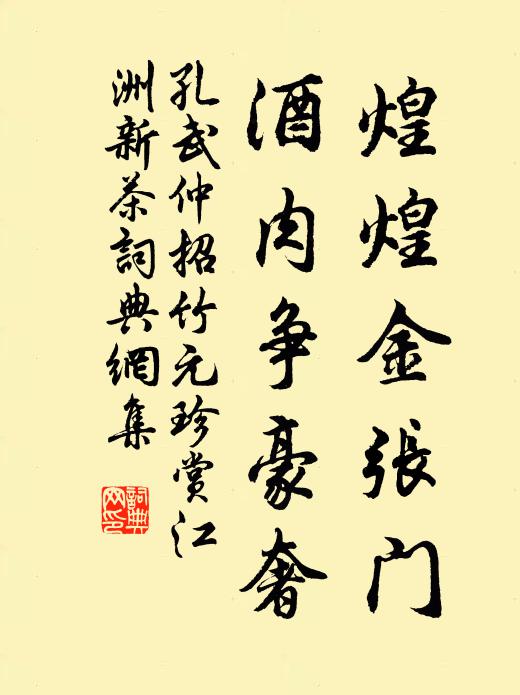 煌煌金張門
酒肉争豪奢
孔武仲招竹元珍賞江
洲新茶詞典網集
詞典
网印